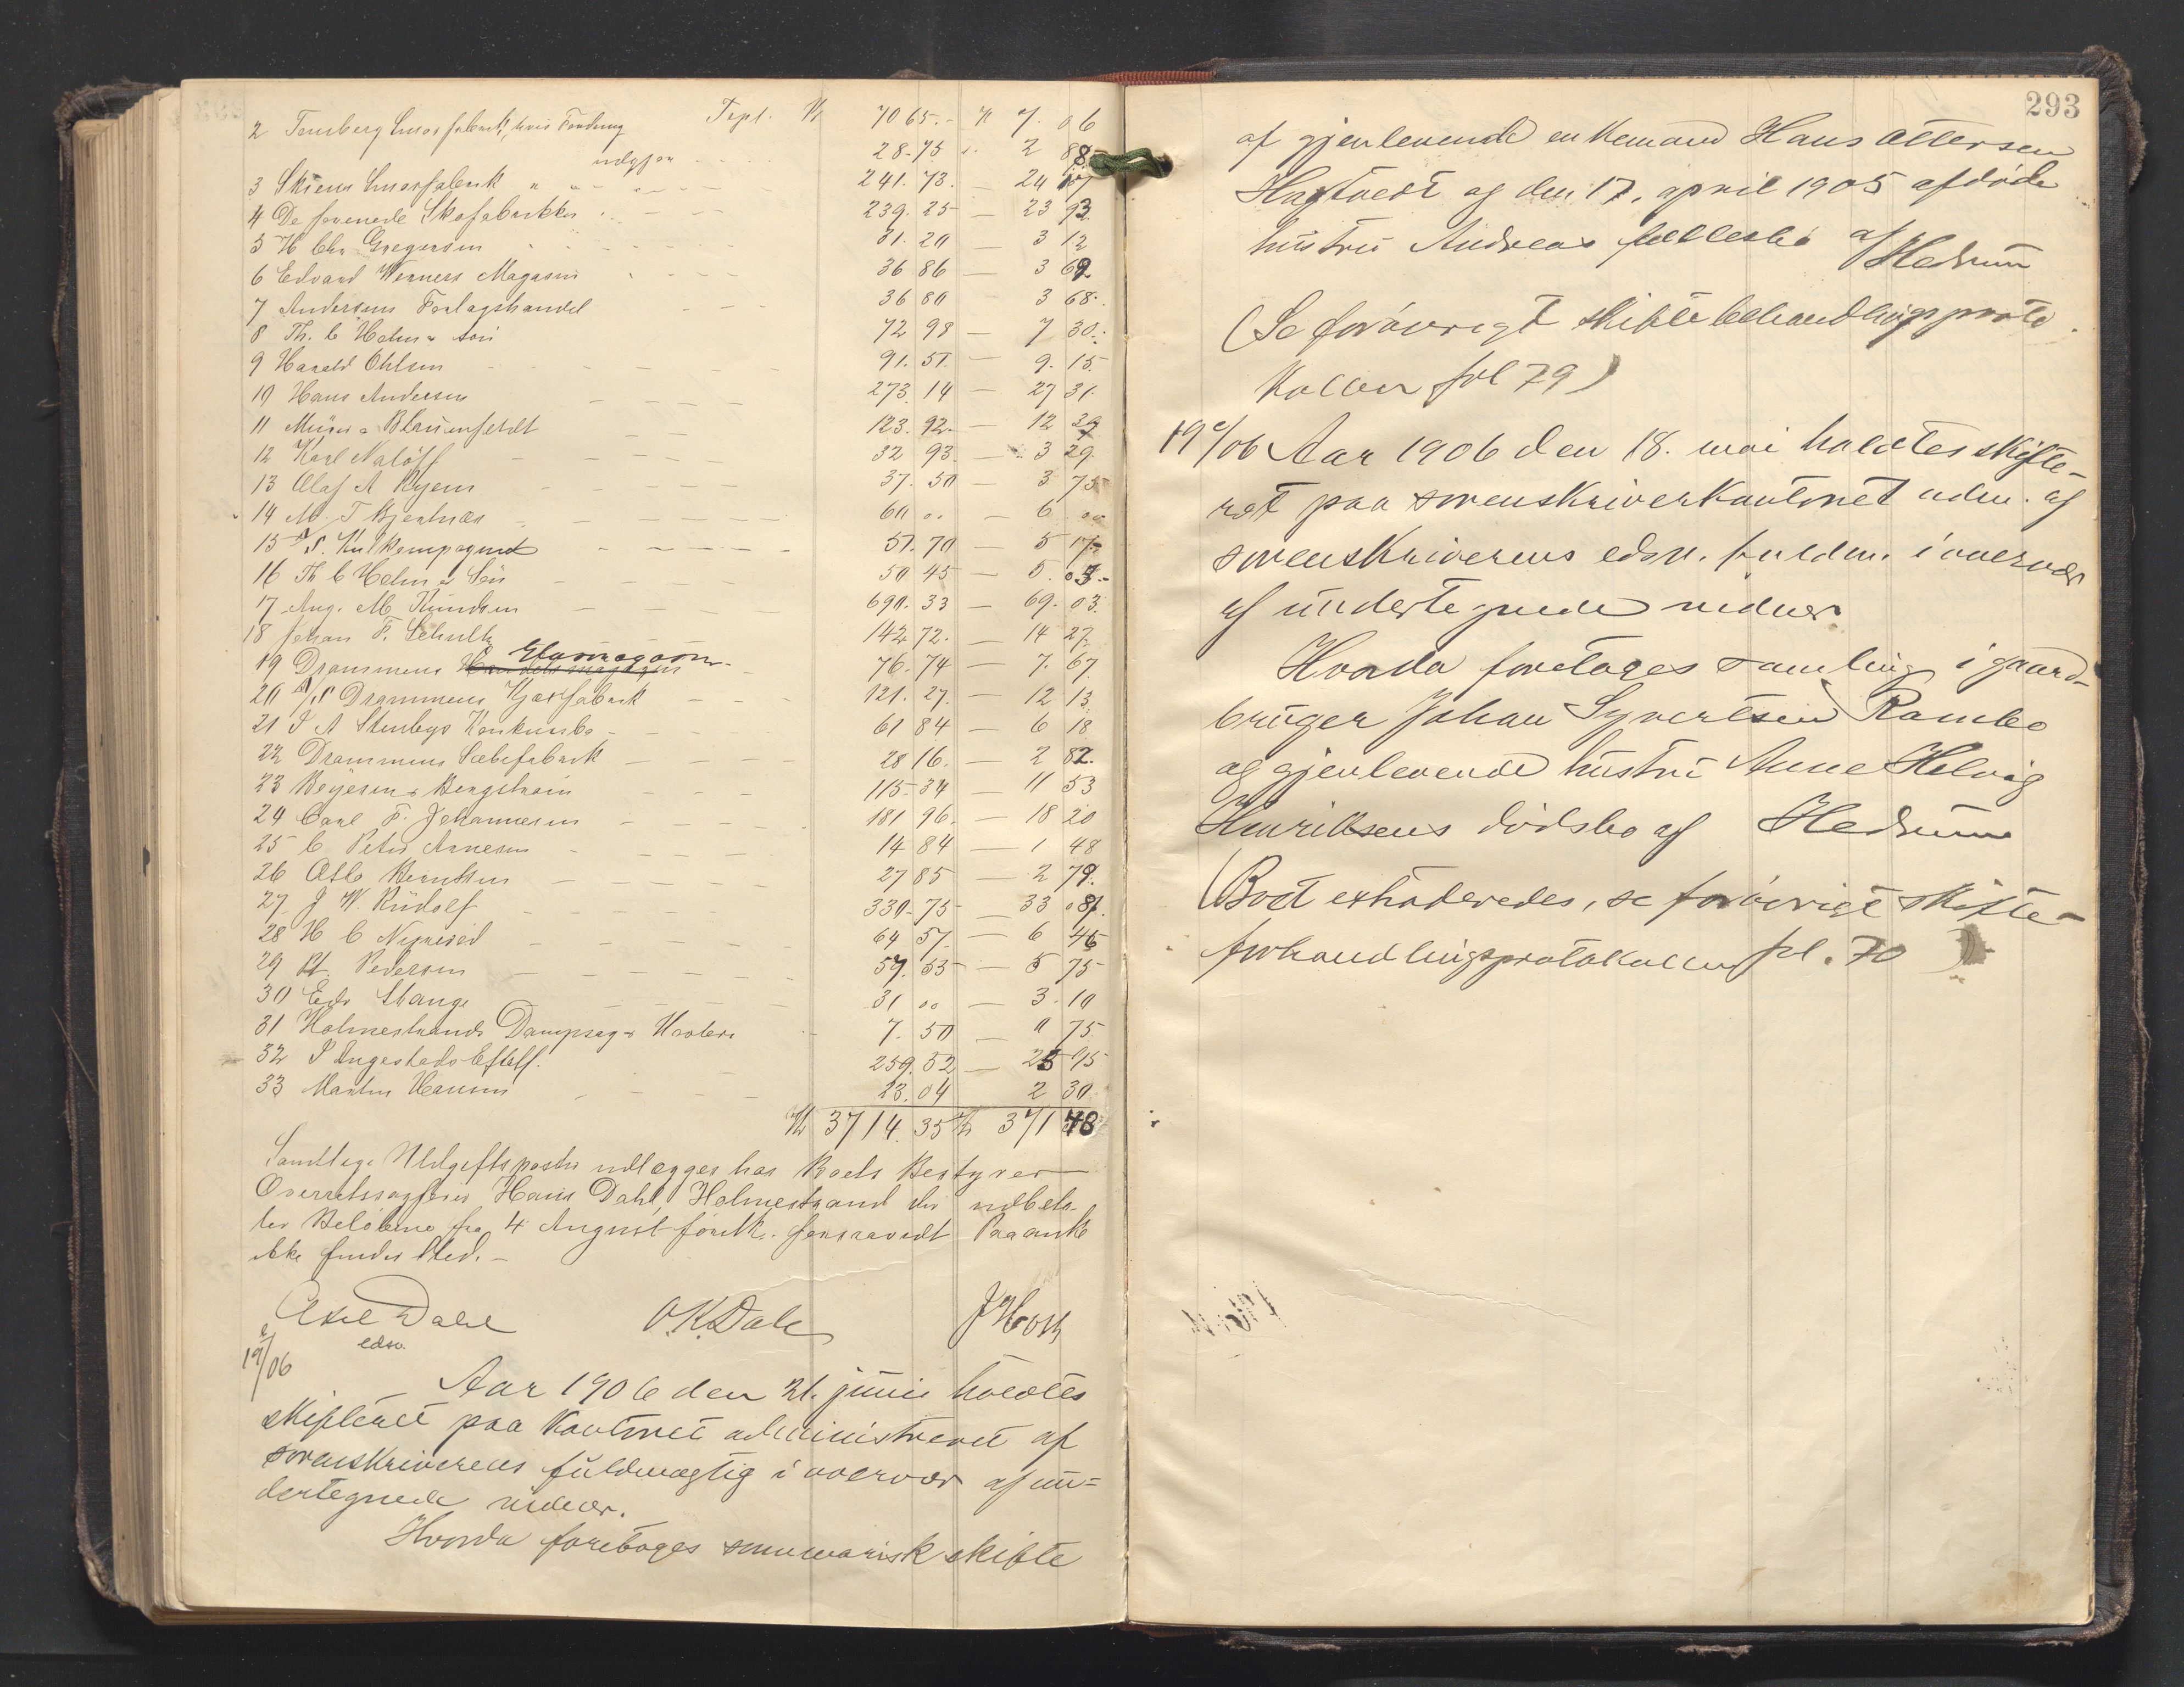 Tspt. Kr 70 65. - Kr 7. 06
2 Tønsberg Smørfabrik, hvis Fordring
udgjør 28. 75 2 88
3 Skiens Smørfabrik " " - 241. 73. 24 17
4 De forenede Skofabrikker 239. 25 - 23 93
5 H Chr Gregersen 31. 20 - 3 12
6 Edvard Werners Magasin 36 86 - 3 69
7 Andersens Forlagshandel 36 80 3 68.
8 Th. C Holm & Søn 72 98 - 7 30.
9 Harald Ohlsen 91. 51. - 9. 15.
10 Hans Andersen 273. 14 - 27 31.
11 Müller & Blumenfeldt 123. 92. - 12 39
12 Karl 32 93. - 3 29.
13 Olaf A Ryen 37. 50 - 3 75
14 M. T Bjentnæs 60 00 - 6 00
15 A/S. Kulkompagniet 51. 70 - 5 17
16 Th C Holm & Søn 50 45 - 5. 05-
17 Aug. M. Knudsen 690. 33 - 69. 03.
18 Johan F. Schultz 142 72. - 14 27.
Glasmagasin
19 Drammens 76. 74 7. 67
20 A/S Drammens Kjæxfabrik 121. 27. - 12 13.
21 S A Stenbys Konkursbo 61 84 - 6 18
22 Drammens Sæbefabrik 28 16. - 2 82.
23 Beyer & Bergstrøm 115 34 - 11 53
24 Carl F. Johannesen 181 96. - 18 20
25 C Peter Arnesen 14 84 - 1 48
26 Berntsen 27 85 - 2 79.
27 J W. Rudolf 330. 75 33 08.
28 H C 64 57. - 6 46
29 Pedersen 57. 53 - 5 75
30 Edv Stange 31 00 - 3. 10
31 Holmestrands Dampsag & Høvleri 7. 50 0 75
32 S Ingestads Eftflf. 259. 52 - 25 95
33 Martin Hansen 23. 04 2 30.
Kr 3714. 35 Kr 371 43
Samtlige Udgiftsposter udlægges hos Boets Bestyrer
Overretssagfører Hans Dahl, Holmestrand der udbeta-
ler Beløbene fra 4 August førstk. forsaavidt Paaanke
ikke finder Sted. -
Axel Dahl O. K. Dale J Horn
edsv.
19 c/06
Aar 1906 den 21. juni holdtes
skifteret paa kontoret administreret af
sorenskriverens fuldmægtig i overvær af un-
dertegnede vidner.
Hvorda foretoges summarisk skifte
293
af gjenlevende enkemand Hans Ottersen
Hagtvedt og den 17. april 1905 afdøde
hustru Andreas fællesbo af
Hedrum
(Se forøvrigt skiftebehandlingsproto
kollen fol 79)
19 c/06 Aar 1906 den 18. mai holdtes skifte-
ret paa sorenskriverkontoret adm. af
sorenskriverens edsv. fuldm. i overvær
af undertegnede vidner.
Hvorda foretoges samling i gaard-
bruger Johan Syvertsen Rambo
og gjenlevende hustru Anne Helvig
Henriksens dødsbo af Hedrum
(Boet extraderedes, se forøvrigt skifte-
forhandlingsprotokollen fol. 70)